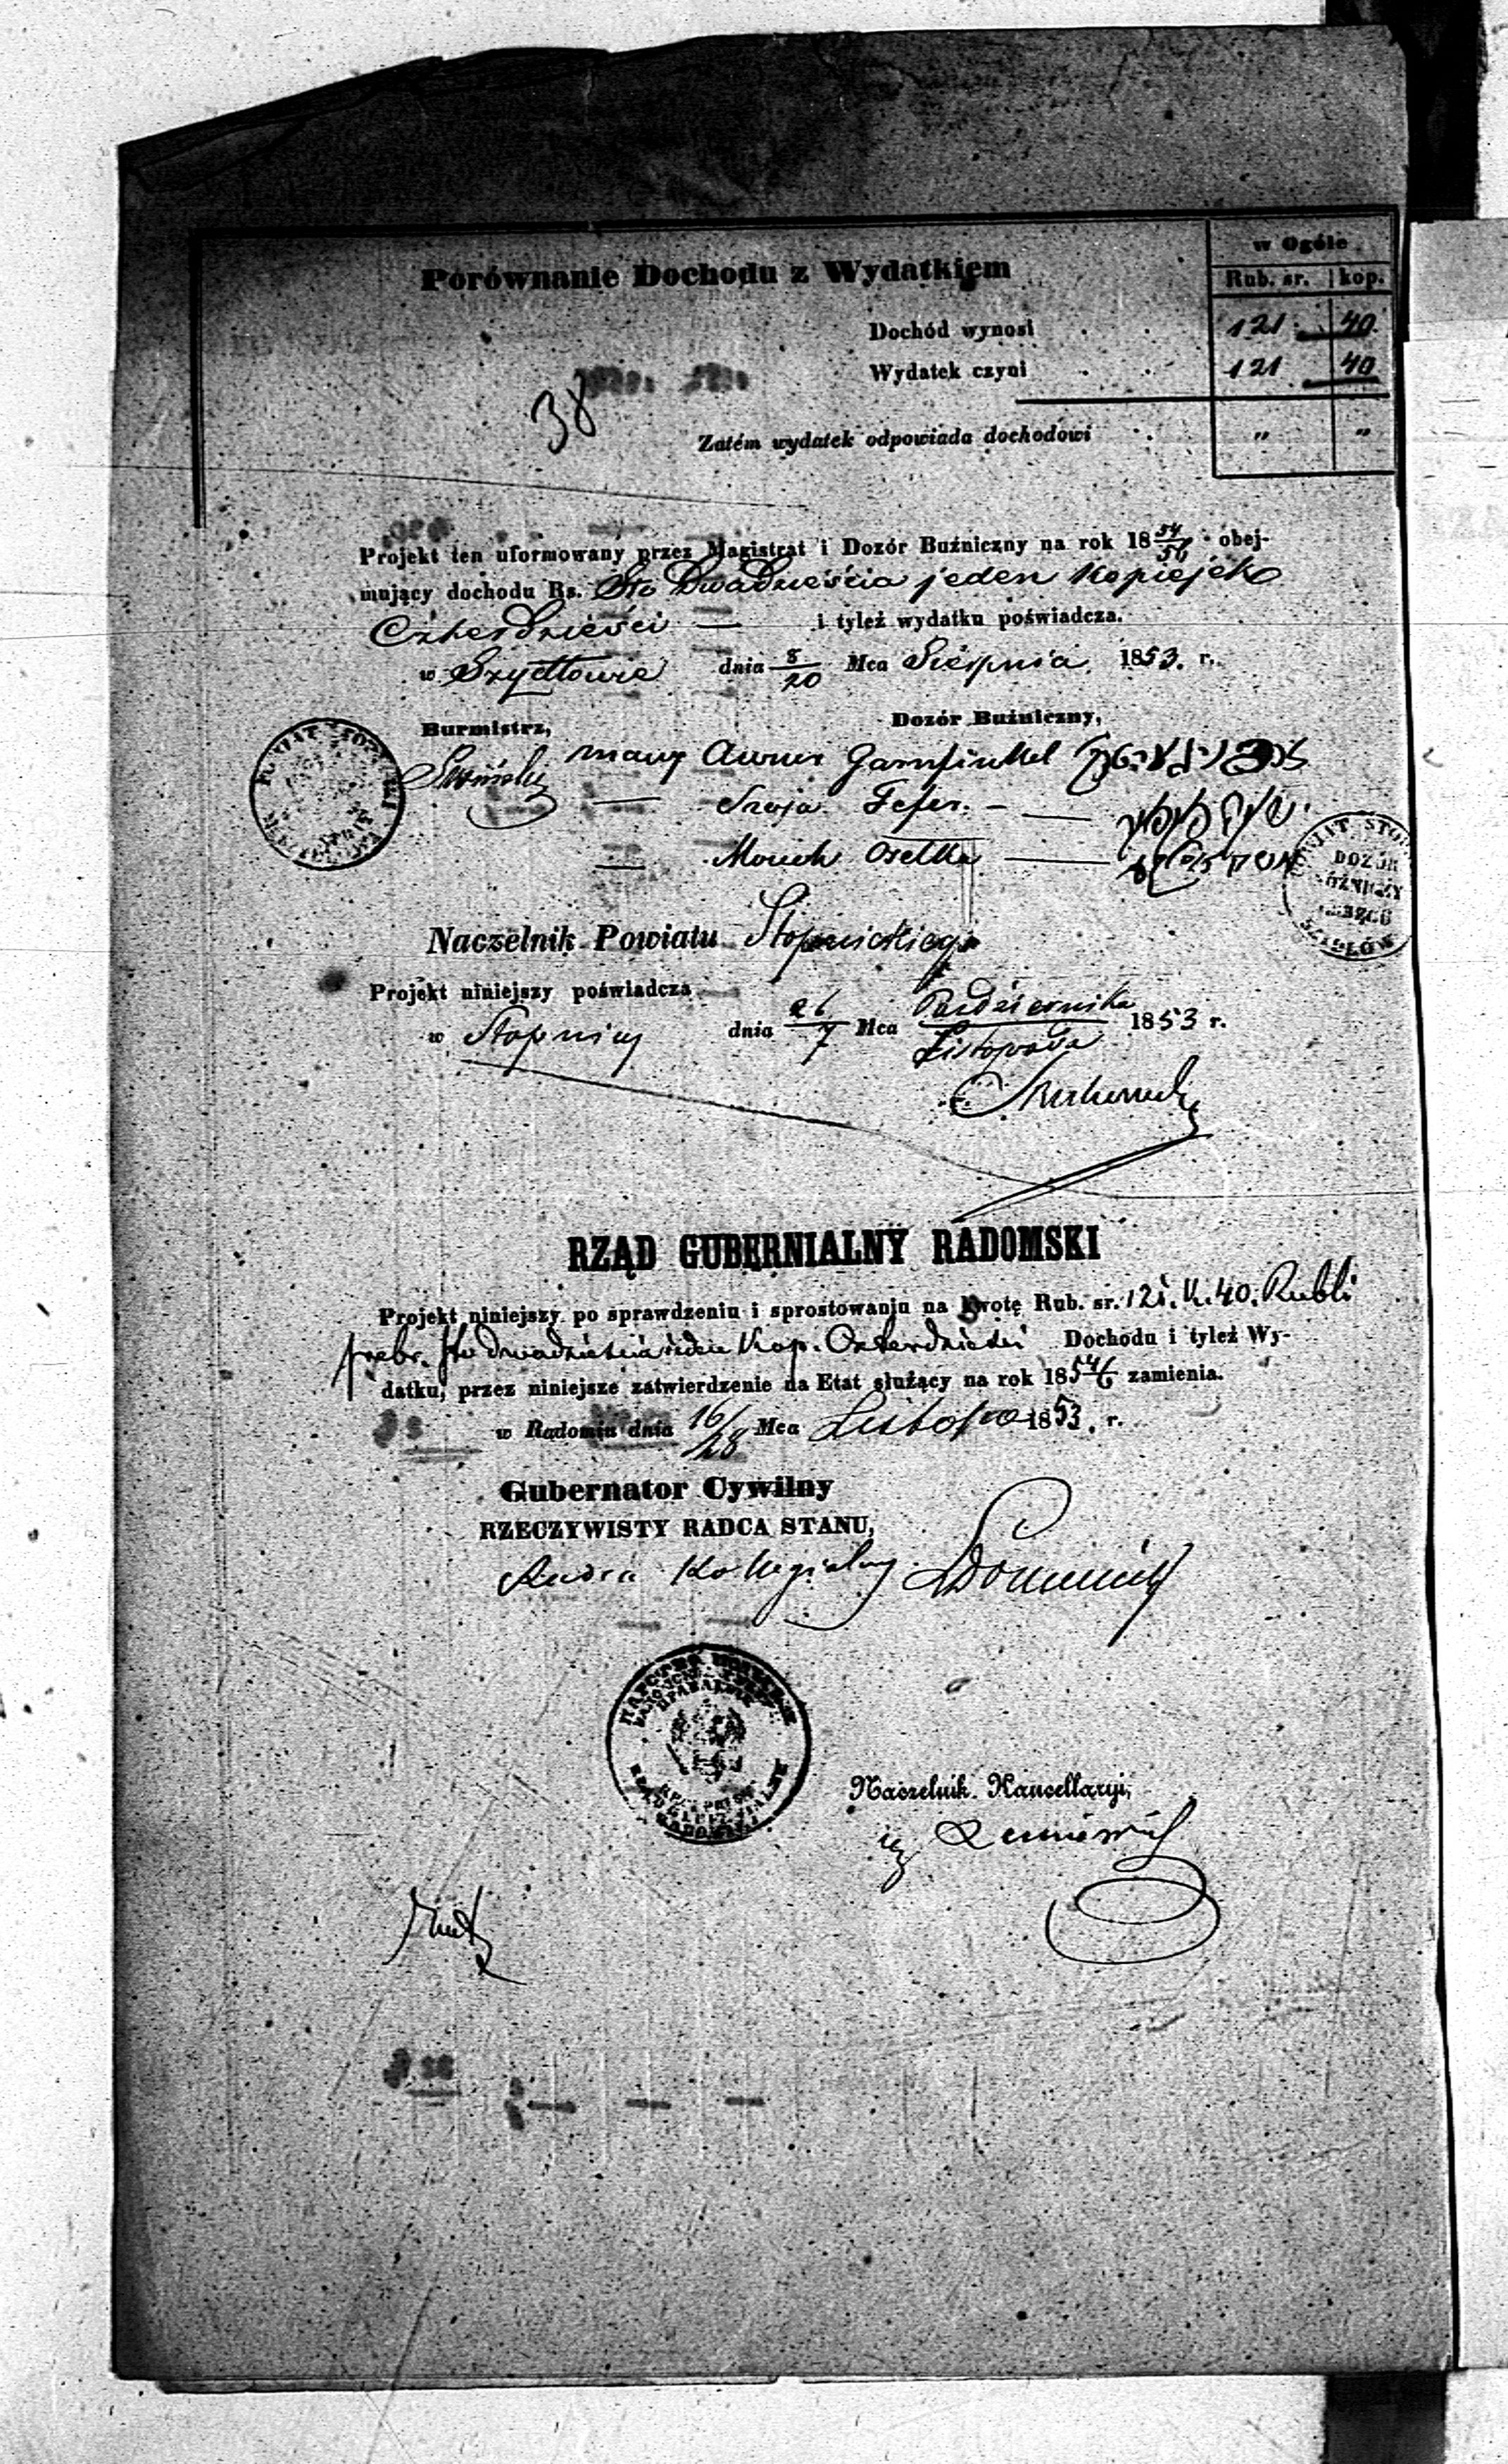 w Ogóle
Porównanie Dochodu z Wydatkiem
Rub. sr. kop.
Dochód wynosi . . 121 40
Wydatek czyni . . 121 40
38
Zatém wydatek odpowiada dochodowi . . „ „
Projekt ten uformowany przez Magistrat i Dozór Buźniczny na rok 18 54/56 obej-
mujący dochodu Rs. Sto Dwadzieścia jeden Kopiejek
Czterdzieści — i tyleż wydatku poświadcza.
w Szydłowie dnia 8/20 Mca Sierpnia 1853. r.
Burmistrz, Dozór Buźniczny,
Garfinkel
— Fefer. —
— Moszek Osełka —
POWIAT STO
DOZÓR
SZYDŁÓW
Naczelnik Powiatu Stopnickiego
Projekt niniejszy poświadcza
w Stopnicy dnia 26/7 Mca Października/Listopada 1853 r.
RZĄD GUBERNIALNY RADOMSKI
Projekt niniejszy po sprawdzeniu i sprostowaniu na kwotę Rub. sr. 121. k. 40. Rubli
srebr. sto dwadzieścia jeden Kop. Czterdzieści Dochodu i tyleż Wy-
datku, przez niniejsze zatwierdzenie na Etat służący na rok 1854/6 zamienia.
w Radomiu dnia 16/28 Mca Listopa 1853. r.
Gubernator Cywilny
RZECZYWISTY RADCA STANU,
Radca Kollegialny
Naczelnik Kancellaryi,